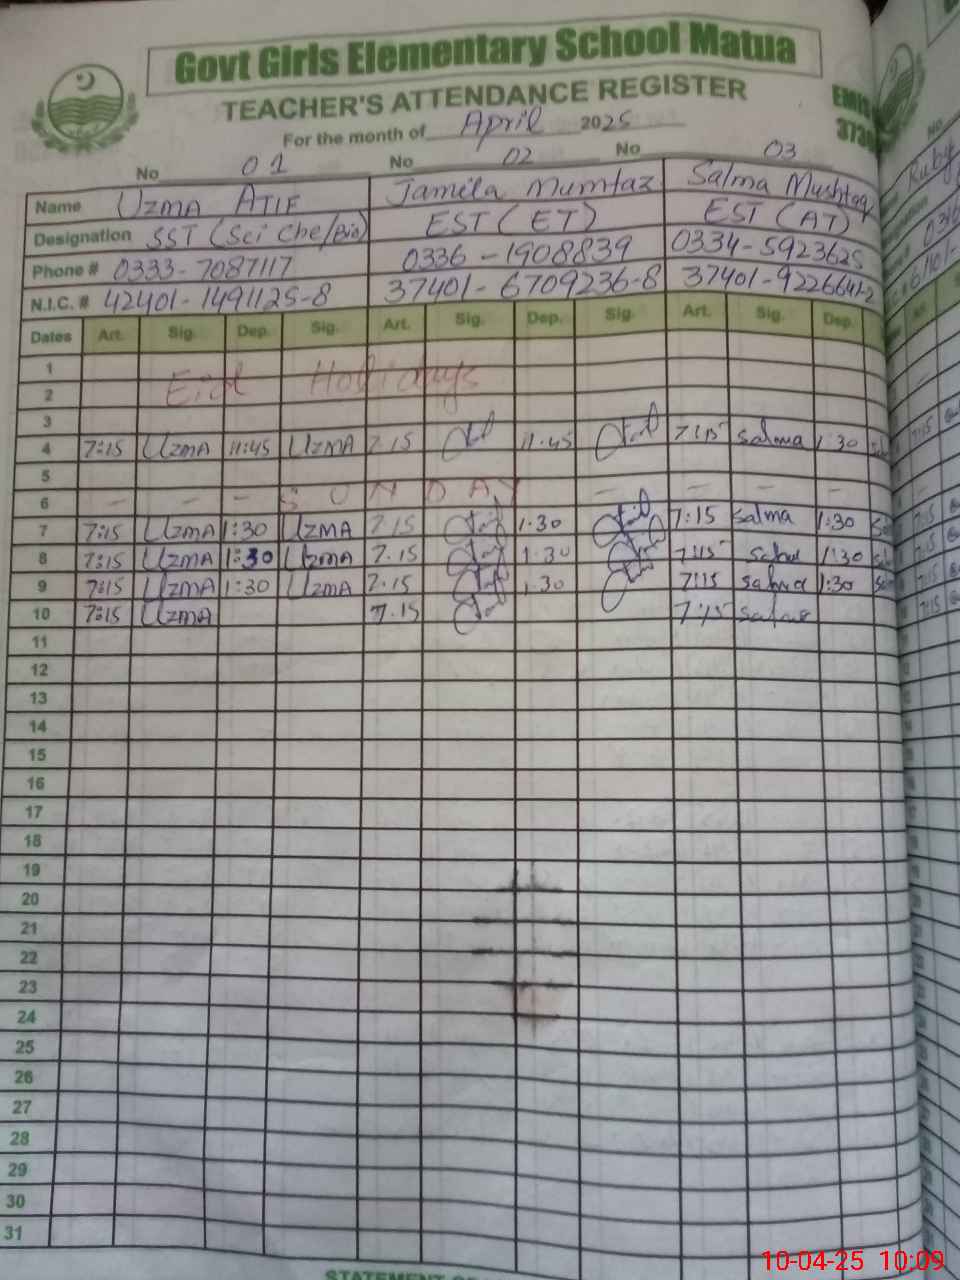 Govt Girls Elementary School Matua
TEACHER'S ATTENDANCE REGISTER
EMIS
373
For the month of April 2025
No 01 No 02 No 03
Name UZMA ATIF Jamila Mumtaz Salma Mushtaq
Designation SST (Sci Che/Bio) EST (ET) EST (AT)
Phone # 0333-7087117 0336-1908839 0334-5923625
N.I.C. # 42401-1491125-8 37401-6709236-8 37401-9226641-2
Dates Art. Sig. Dep. Sig. Art. Sig. Dep. Sig. Art. Sig. Dep.
1
2 Eid Holidays
3
4 7:15 UZMA 11:45 UZMA 7.15 11.45 7:15 Salma 1:30
5
6 - - - SUNDAY - - - -
7 7:15 UZMA 1:30 UZMA 7.15 1.30 7:15 Salma 1:30
8 7:15 UZMA 1:30 UZMA 7.15 1.30 7:15 1:30
9 7:15 UZMA 1:30 UZMA 7.15 1.30 7:15 Salma 1:30
10 7:15 UZMA 7.15 7:15
11
12
13
14
15
16
17
18
19
20
21
22
23
24
25
26
27
28
29
30
31
Ruby
7:15
10-04-25 10:09